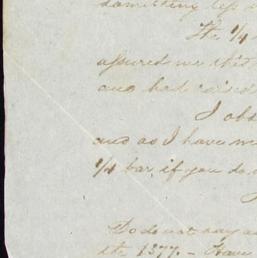 something
The 1/4
assured me this
and had
I obs
and as I have
1/4 bar, if you do
Do do not say a
the 1377. - Have